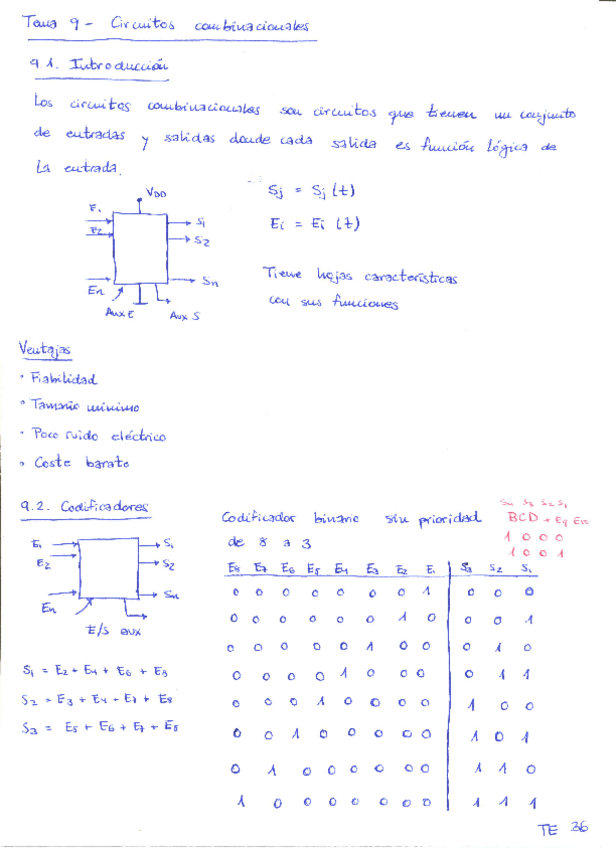 Tema 9 - Circuitos combinacionales
9.1. Introducción
Los circuitos combinacionales son circuitos que tienen un conjunto
de entradas y salidas donde cada salida es función lógica de
la entrada.
VDD
E1
E2
En
S1
S2
Sn
Aux E
Aux S
Sj = Sj (t)
Ei = Ei (t)
Tiene hojas características
con sus funciones
Ventajas
• Fiabilidad
• Tamaño mínimo
• Poco ruido eléctrico
• Coste barato
9.2. Codificadores
E1
E2
En
S1
S2
Sn
E/S aux
S1 = E2 + E4 + E6 + E8
S2 = E3 + E4 + E7 + E8
S3 = E5 + E6 + E7 + E8
Codificador binario sin prioridad
de 8 a 3
S4 S3 S2 S1
BCD + E9 E10
1 0 0 0
1 0 0 1
E8 E7 E6 E5 E4 E3 E2 E1 S3 S2 S1
0 0 0 0 0 0 0 1 0 0 0
0 0 0 0 0 0 1 0 0 0 1
0 0 0 0 0 1 0 0 0 1 0
0 0 0 0 1 0 0 0 0 1 1
0 0 0 1 0 0 0 0 1 0 0
0 0 1 0 0 0 0 0 1 0 1
0 1 0 0 0 0 0 0 1 1 0
1 0 0 0 0 0 0 0 1 1 1
TE 36